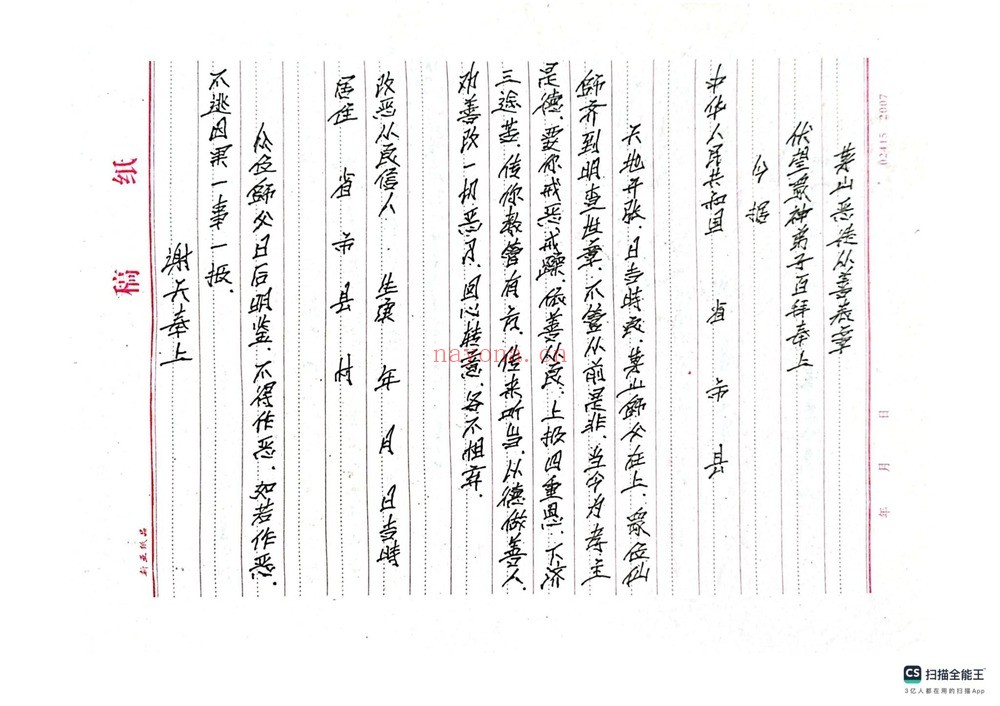 茅山恶徒从善表章
伏望众神弟子百拜奉上
今据
中华人民共和国 省 市 县
天地开张、日吉时良、茅山师父在上、众位仙
师齐到明查世章、不管从前是非、当今为孝主
是德、要你戒恶戒躁、依善从良、上报四重恩、下济
三途苦、传你教管有方、传来听当、从德做善人、
对善改一切恶习、回心转意、各不相弃、
改恶从良信人 生庚 年 月 日吉时
居住 省 市 县 村
众位师父日后明鉴、不得作恶、如若作恶、
不逃因果一事一报、
谢天奉上
纸
稿
新亚纸品
02415 2007
年 月 日
nayona.cn
CS 扫描全能王
3亿人都在用的扫描App